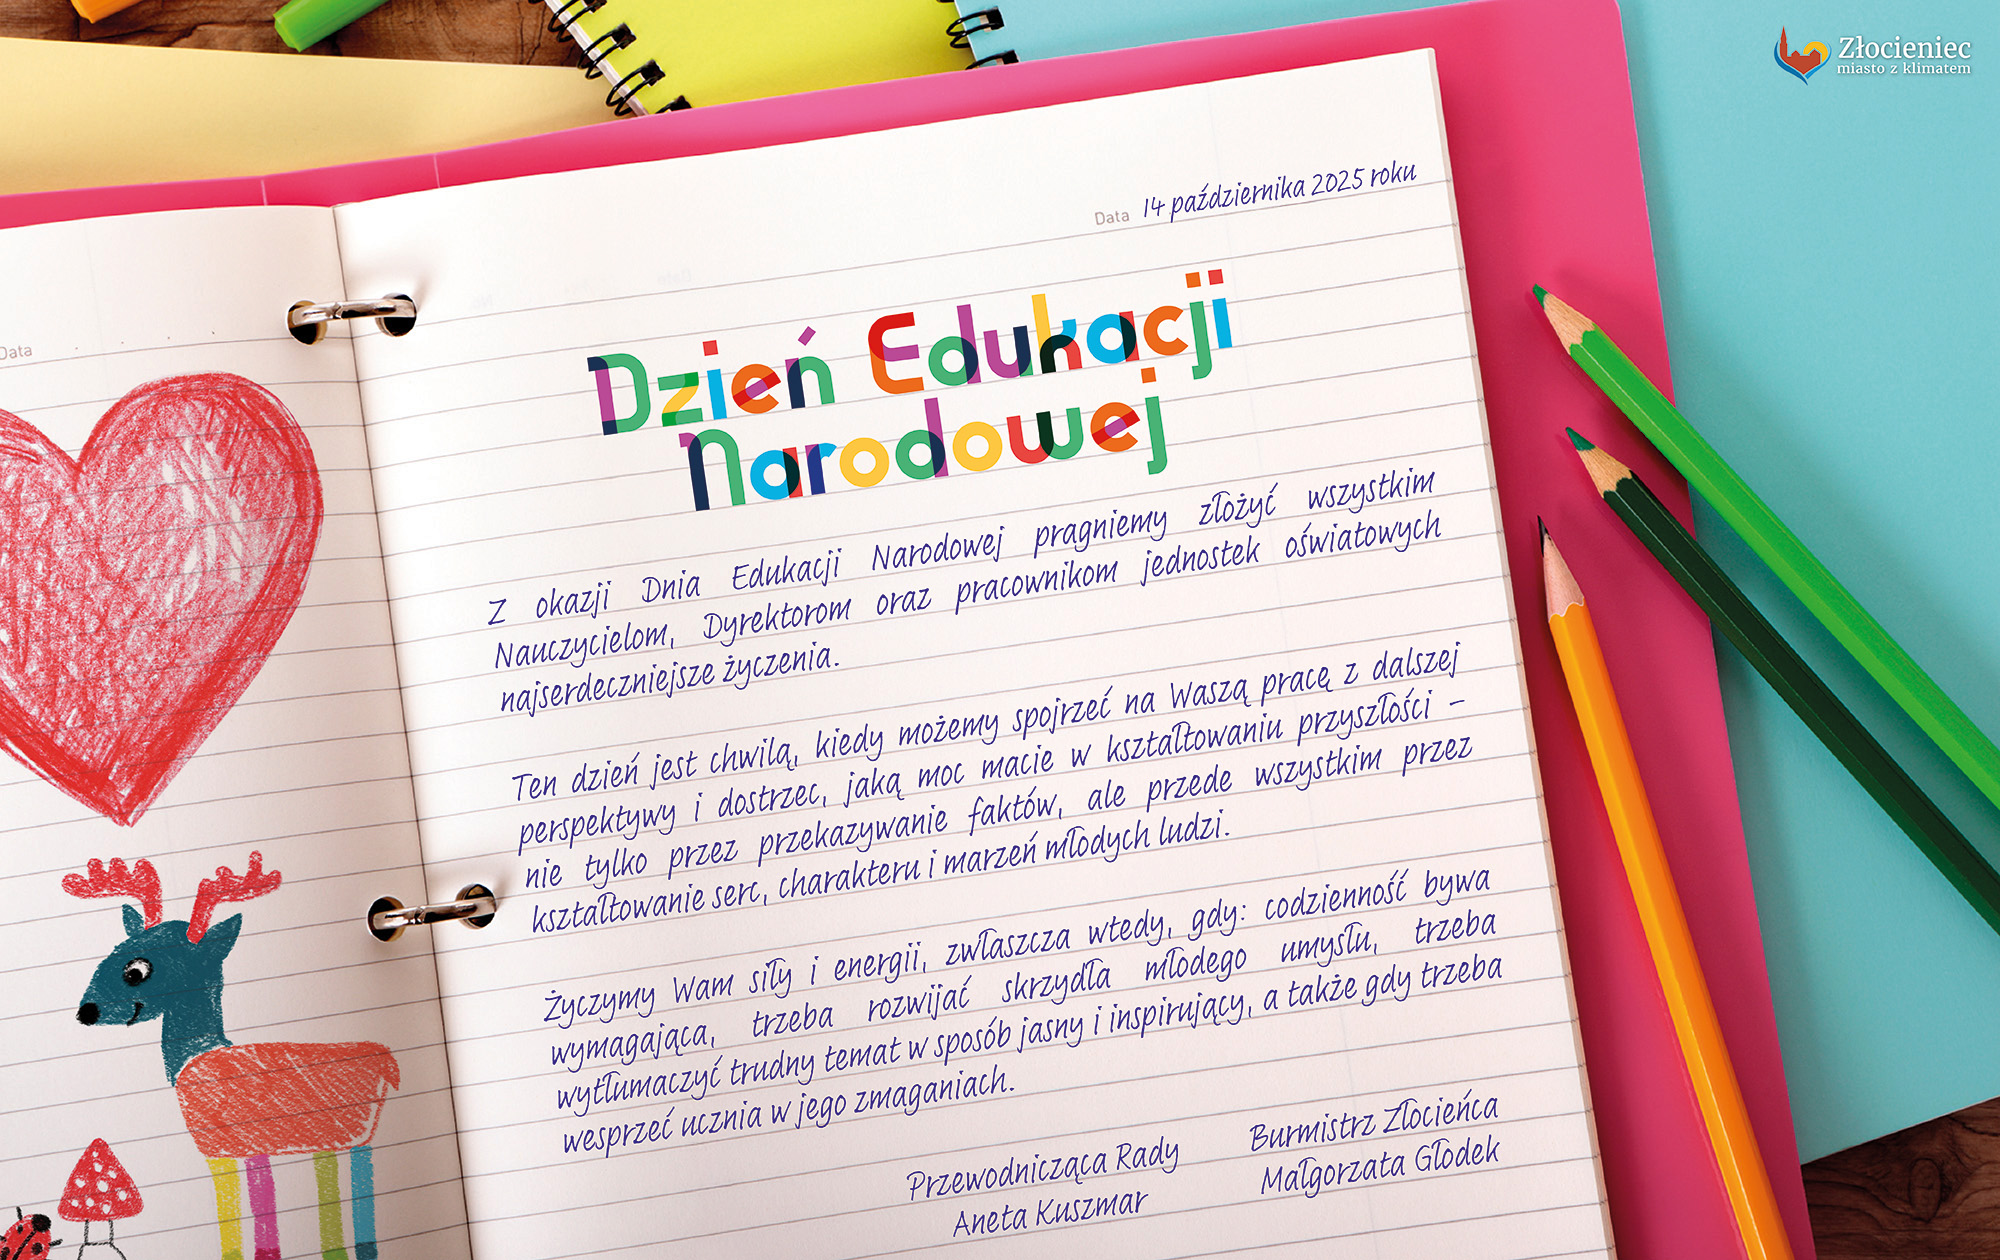 Złocieniec
miasto z klimatem
Data 14 października 2025 roku
Data
Dzień Edukacji
Narodowej
Z okazji Dnia Edukacji Narodowej pragniemy złożyć wszystkim
Nauczycielom, Dyrektorom oraz pracownikom jednostek oświatowych
najserdeczniejsze życzenia.
Ten dzień jest chwilą, kiedy możemy spojrzeć na Waszą pracę z dalszej
perspektywy i dostrzec, jaką moc macie w kształtowaniu przyszłości –
nie tylko przez przekazywanie faktów, ale przede wszystkim przez
kształtowanie serc, charakteru i marzeń młodych ludzi.
Życzymy Wam siły i energii, zwłaszcza wtedy, gdy: codzienność bywa
wymagająca, trzeba rozwijać skrzydła młodego umysłu, trzeba
wytłumaczyć trudny temat w sposób jasny i inspirujący, a także gdy trzeba
wesprzeć ucznia w jego zmaganiach.
Przewodnicząca Rady
Aneta Kuszmar
Burmistrz Złocieńca
Małgorzata Głodek